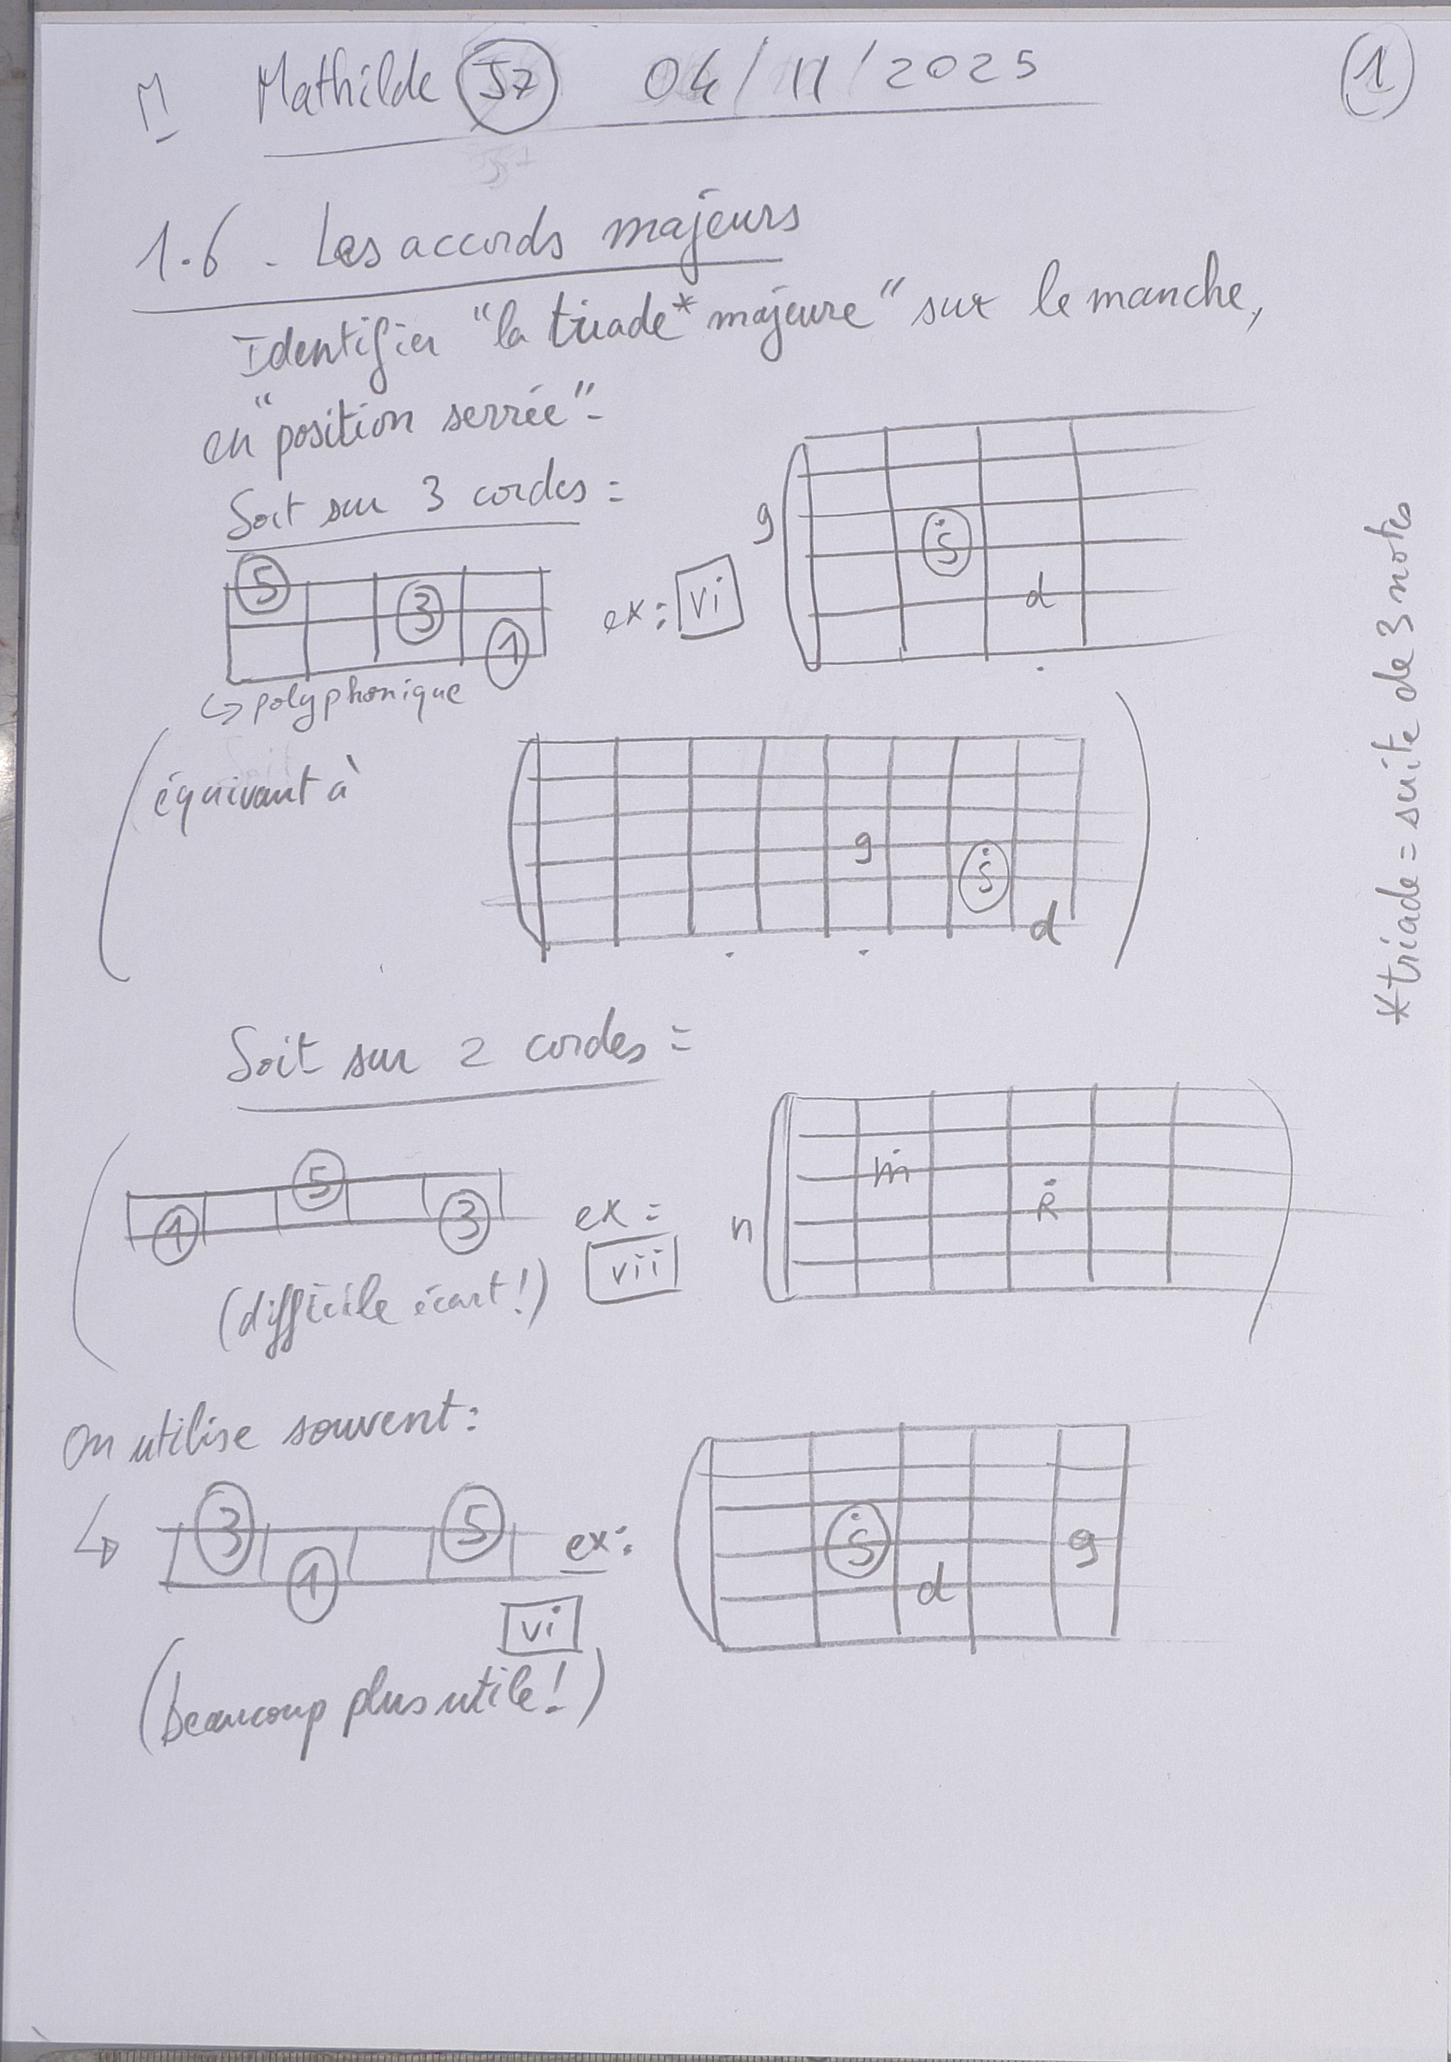 M Mathilde J7 04/11/2025 1
1.6. Les accords majeurs
Identifier "la triade* majeure" sur le manche,
en "position serrée".
Soit sur 3 cordes :
5 3 1
↳ polyphonique
ex : vi
g ṡ d
(équivaut à
g ṡ d )
Soit sur 2 cordes :
( 1 5 3
(difficile écart !)
ex :
vii
n ṁ Ṙ )
On utilise souvent :
↳ 3 1 5 ex :
vi
ṡ d g
(beaucoup plus utile !)
*triade = suite de 3 notes